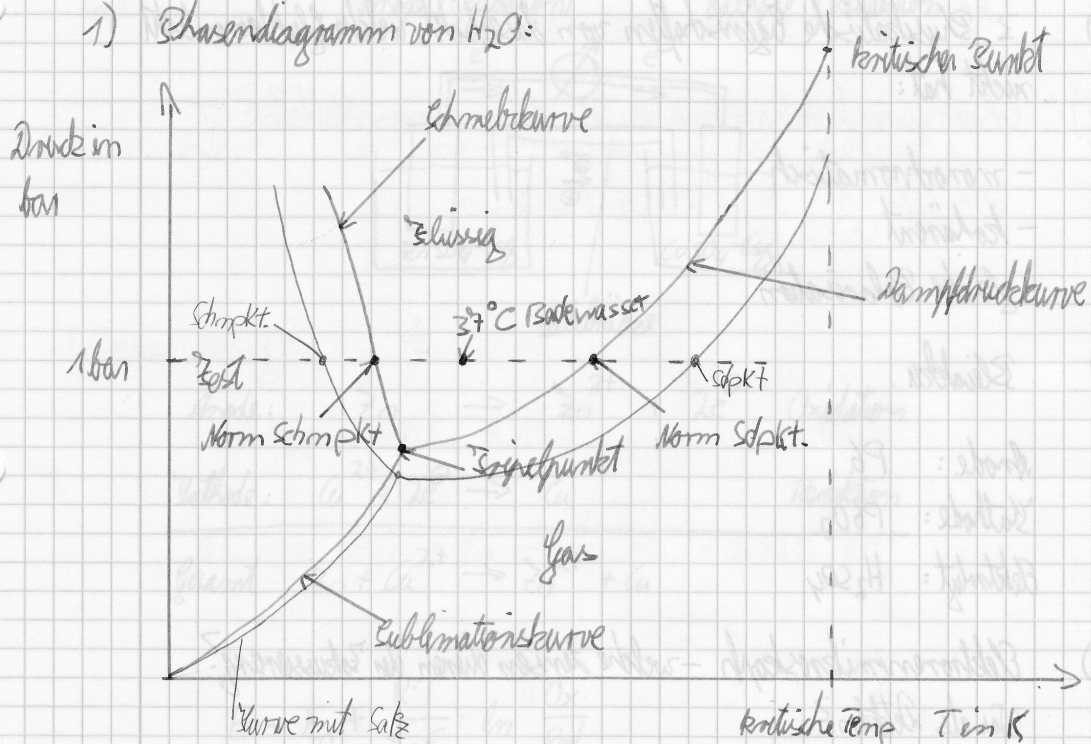 1) Phasendiagramm von H₂O:
kritischer Punkt
Schmelzkurve
Druck in
bar
Flüssig
Dampfdruckkurve
37°C Badewasser
Schmpkt.
1 bar
Fest
Sdpkt
Norm Schmpkt
Norm Sdpkt.
Tripelpunkt
Gas
Sublimationskurve
Kurve mit Salz
kritische Temp
T in K